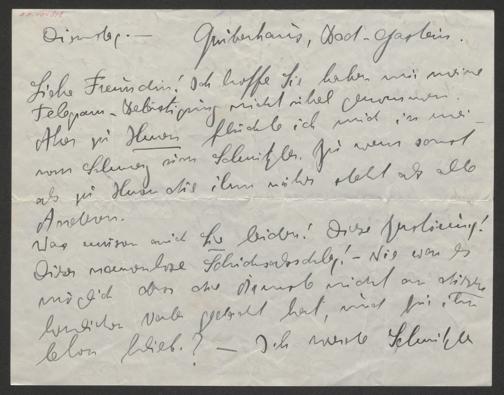 Dienstag.— Grüberhaus, Bad-Gastein.
Liebe Freundin! Ich hoffe Sie haben mir meine
Telegram-Belästigung nicht übel genommen.
Aber zu Ihnen flüchte ich mich in mei-
nem Schmerz um Schnitzler. Zu wem sonst
als zu Ihnen die ihm näher steht als alle
Anderen.
Was müssen auch Sie leiden! Diese
Dieser namenlose Schicksalsschlag!— Wie war es
möglich dass die damals nicht an diesen
herrlichen Vater gedacht hat, nicht für ihn
leben blieb? — Ich werde Schnitzler